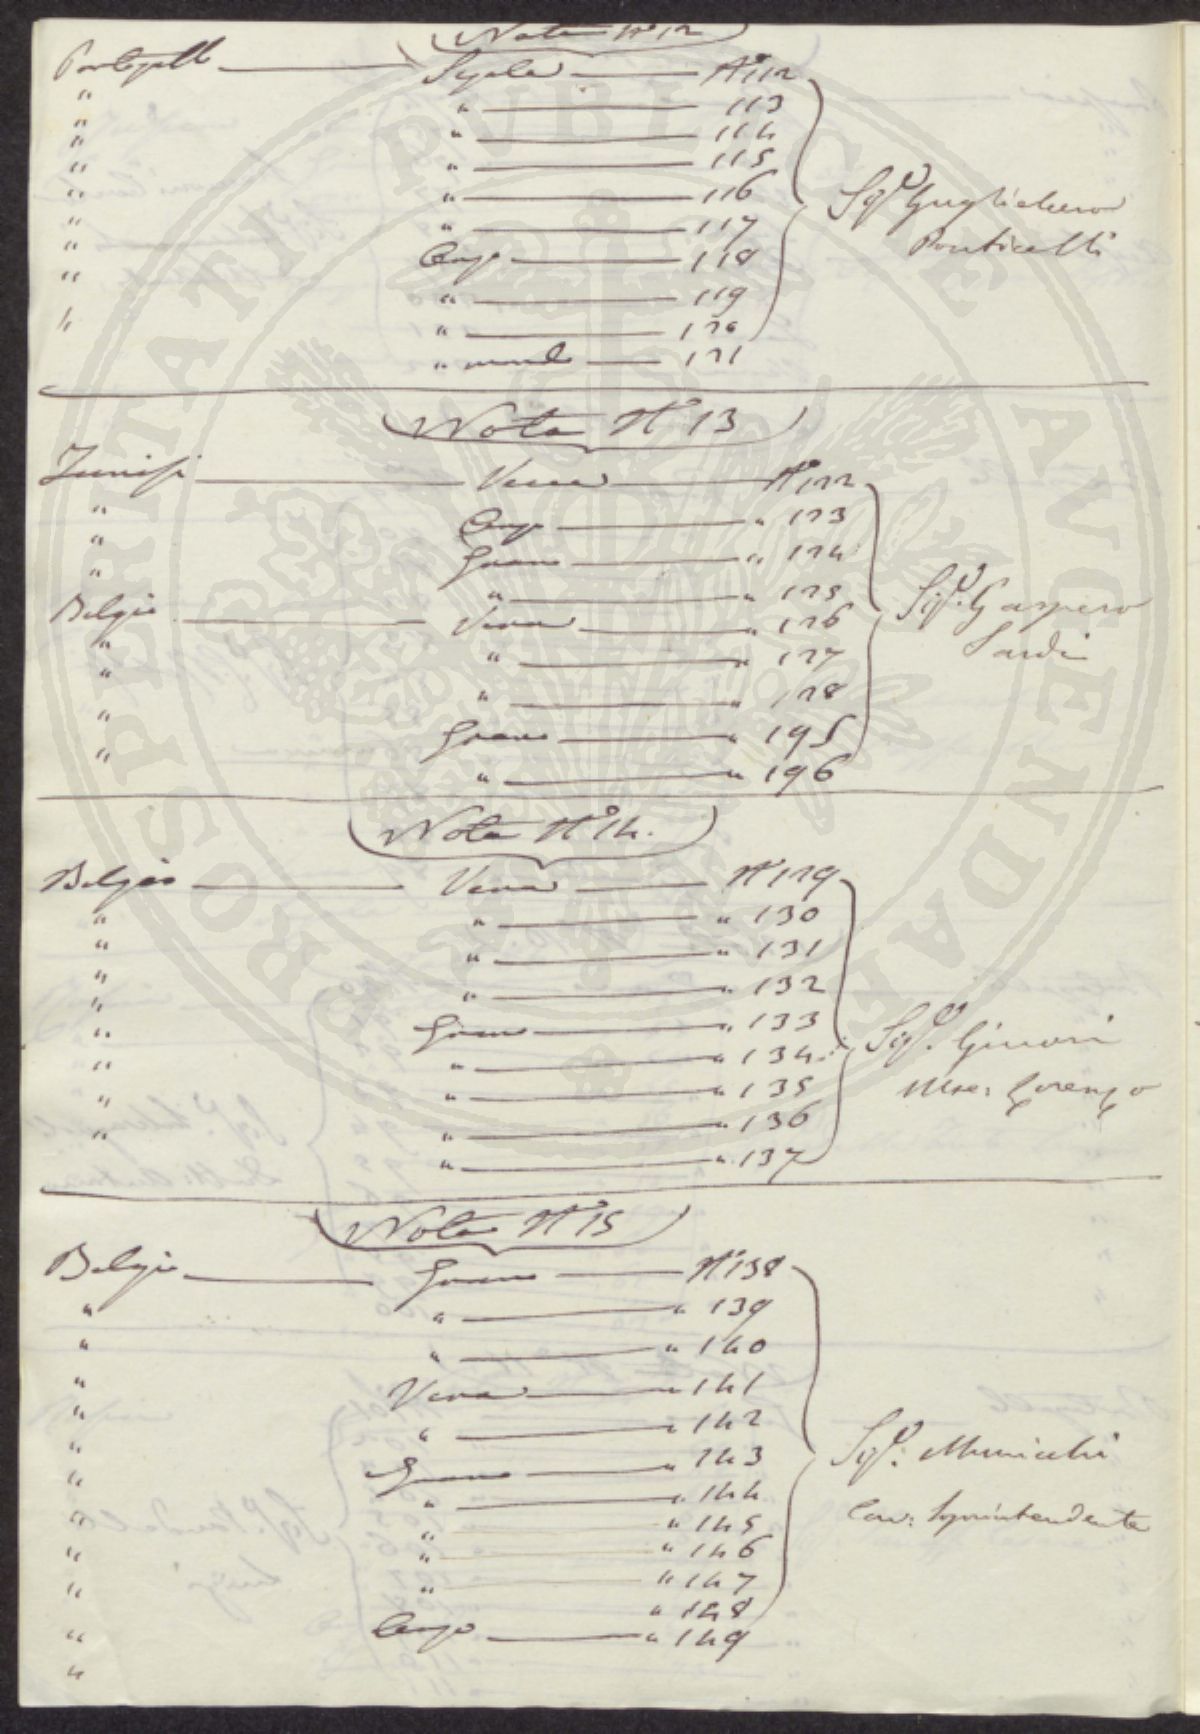 Nota N° 12
Portogallo Segala N° 112
" " 113
" " 114
" " 115
" " 116
" " 117
" Orzo 118
" " 119
" " 120
" mondo 121
Sig.r Guglielmo
Ponticelli
Nota N° 13
Tunisi Vena N° 122
" Orzo " 123
" Grano " 124
" " " 125
Belgio Vena " 126
" " " 127
" " " 128
" Grano " 195
" " " 196
Sig.r Gaspero
Sardi
Nota N° 14.
Belgio Vena N° 129
" " " 130
" " " 131
" " " 132
" Grano " 133
" " " 134
" " " 135
" " " 136
" " " 137
Sig.r Ginori
Mse: Lorenzo
Nota N° 15
Belgio Grano N° 138
" " " 139
" " " 140
" Vena " 141
" " " 142
" Grano " 143
" " " 144
" " " 145
" " " 146
" " " 147
" " 148
" Orzo " 149
"
Sig.r: Municchi
Cav: Soprintendente
PROSPERITATI PUBLICAE AUGENDAE